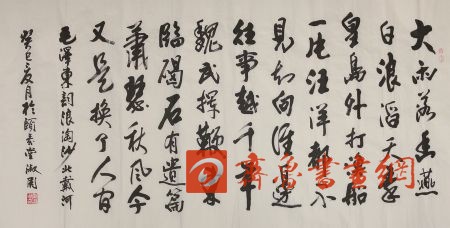 大雨落幽燕
白浪滔天秦
皇岛外打渔船
一片汪洋都不
见知向谁边
往事越千年
魏武挥鞭东
临碣石有遗篇
萧瑟秋风今
又是换了人间
毛泽东词浪淘沙北戴河
癸巳夏月于颐
齐鲁书画網